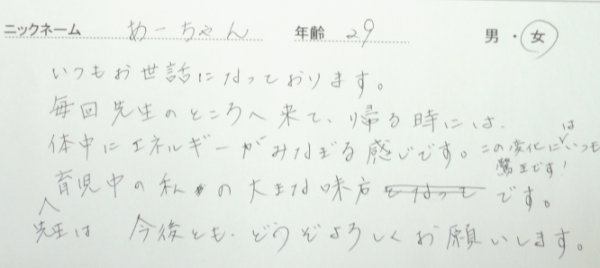 ニックネーム めーちゃん 年齢 29 男・女
いつもお世話になっております。
毎回先生のところへ来て、帰る時には、
体中にエネルギーがみなぎる感じです。この変化にはいつも
驚きです!
育児中の私の大きな味方です。
先生は
今後とも、どうぞよろしくお願いします。